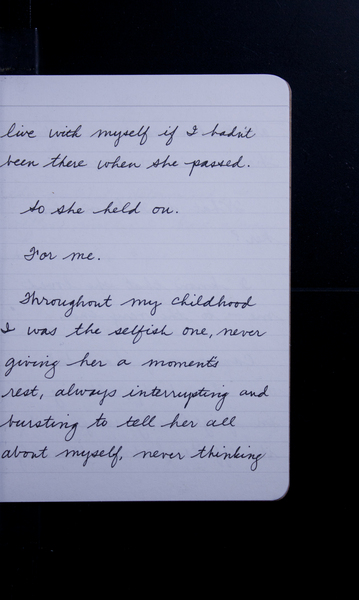 live with myself if I hadn't
been there when she passed.
So she held on.
For me.
Throughout my childhood
I was the selfish one, never
giving her a moment's
rest, always interrupting and
bursting to tell her all
about myself, never thinking